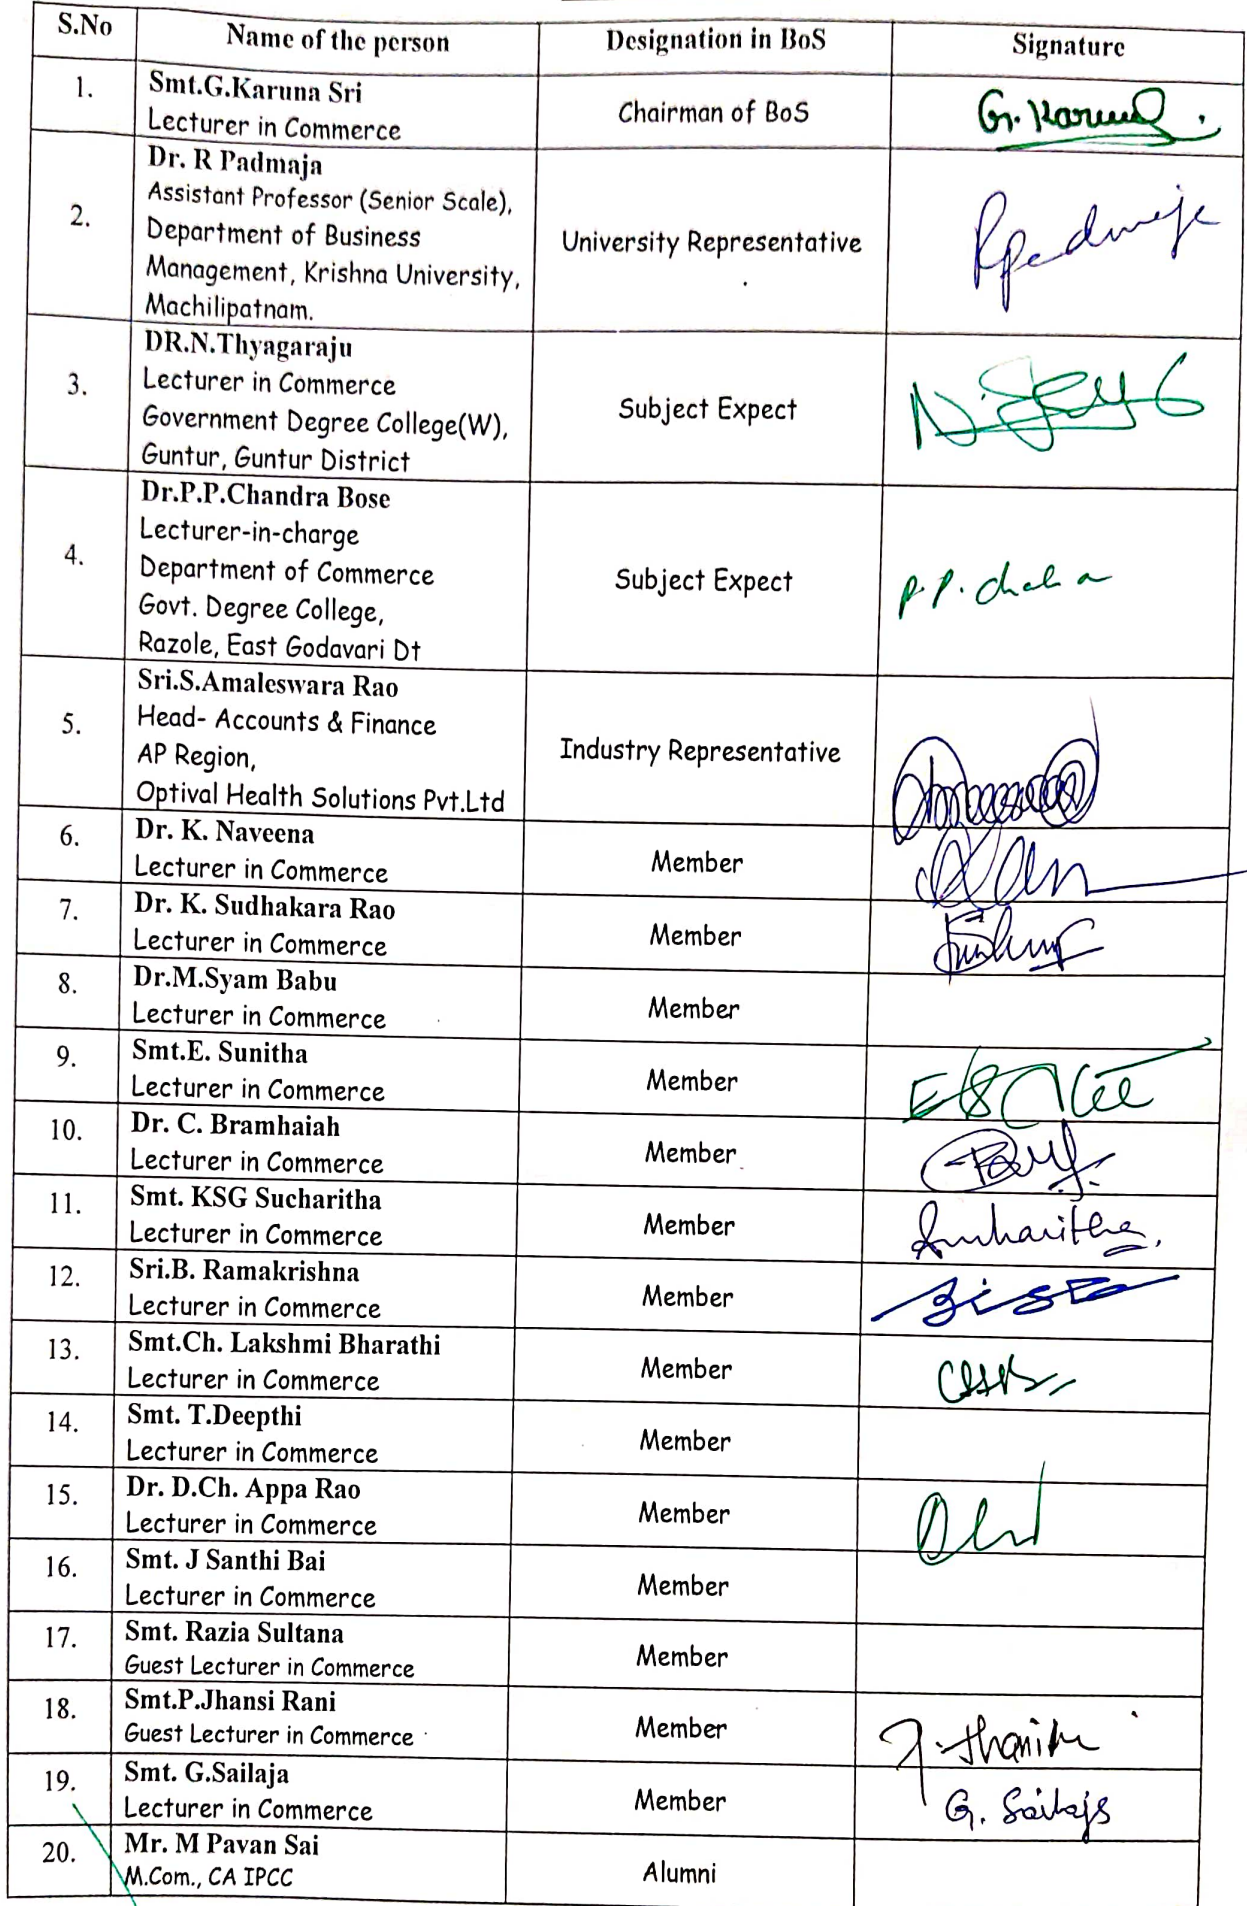 S.No Name of the person Designation in BoS Signature
1. Smt.G.Karuna Sri
Lecturer in Commerce Chairman of BoS G. Karuna
2. Dr. R Padmaja
Assistant Professor (Senior Scale),
Department of Business
Management, Krishna University,
Machilipatnam. University Representative RPadmaja
3. DR.N.Thyagaraju
Lecturer in Commerce
Government Degree College(W),
Guntur, Guntur District Subject Expect
4. Dr.P.P.Chandra Bose
Lecturer-in-charge
Department of Commerce
Govt. Degree College,
Razole, East Godavari Dt Subject Expect P.P.
5. Sri.S.Amaleswara Rao
Head- Accounts & Finance
AP Region,
Optival Health Solutions Pvt.Ltd Industry Representative
6. Dr. K. Naveena
Lecturer in Commerce Member
7. Dr. K. Sudhakara Rao
Lecturer in Commerce Member
8. Dr.M.Syam Babu
Lecturer in Commerce Member
9. Smt.E. Sunitha
Lecturer in Commerce Member
10. Dr. C. Bramhaiah
Lecturer in Commerce Member
11. Smt. KSG Sucharitha
Lecturer in Commerce Member Sucharitha
12. Sri.B. Ramakrishna
Lecturer in Commerce Member
13. Smt.Ch. Lakshmi Bharathi
Lecturer in Commerce Member
14. Smt. T.Deepthi
Lecturer in Commerce Member
15. Dr. D.Ch. Appa Rao
Lecturer in Commerce Member
16. Smt. J Santhi Bai
Lecturer in Commerce Member
17. Smt. Razia Sultana
Guest Lecturer in Commerce Member
18. Smt.P.Jhansi Rani
Guest Lecturer in Commerce Member
19. Smt. G.Sailaja
Lecturer in Commerce Member G. Sailaja
20. Mr. M Pavan Sai
M.Com., CA IPCC Alumni